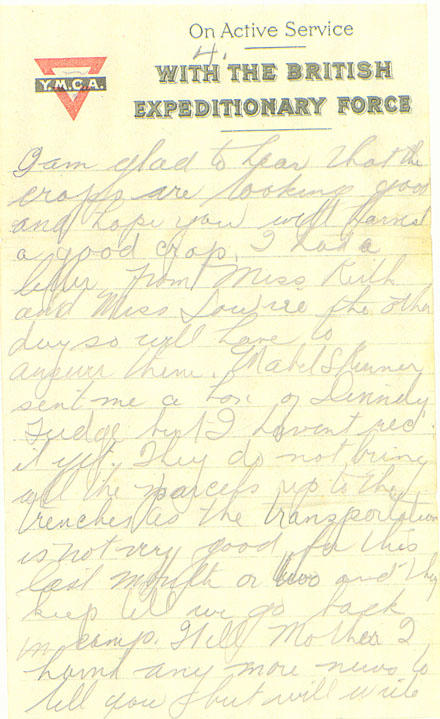 On Active Service
4.
WITH THE BRITISH
EXPEDITIONARY FORCE
Y.M.C.A.
I am glad to hear that the
crops are looking good
and hope you will harvest
a good crop, I had a
letter from Miss Keith
and Miss the other
day so will have to
answer them. Mabel Skinner
sent me a box of
Fudge but I havent rec'
it yet. They do not bring
all the parcels up to the
trenches as the transportation
is not very good for this
last month or two and they
keep till we go back
in camp. Well Mother I
havnt any more news to
tell you but will write